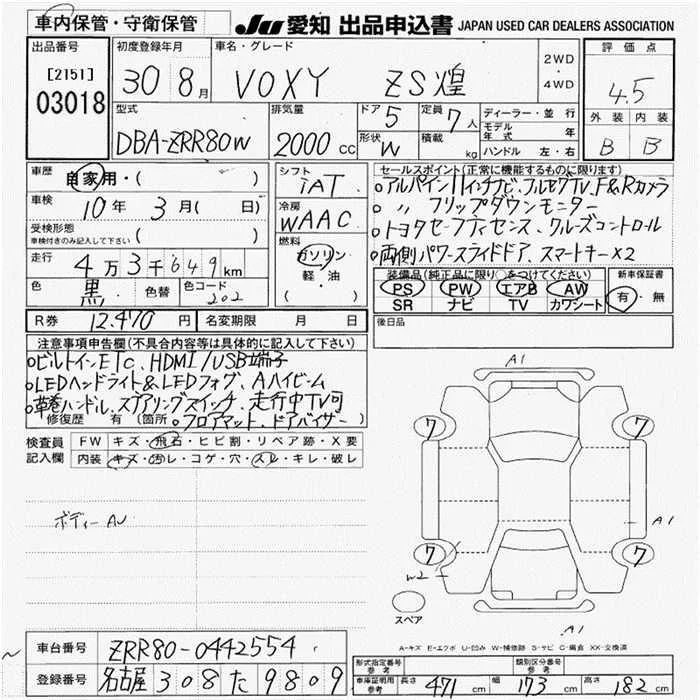 車内保管・守衛保管
JU 愛知 出品申込書 JAPAN USED CAR DEALERS ASSOCIATION
出品番号 初度登録年月 車名・グレード 評価点
[2151]
03018
30 8月 VOXY ZS煌 2WD・4WD 4.5
外装 内装
B B
型式 排気量 ドア 5 定員 7人 ディーラー・並行
DBA-ZRR80W 2000cc 形状 W 積載 kg モデル年式 年
ハンドル 左・右
車歴 自家用・( )
シフト iAT
車検 10年 3月( 日)
冷房 WAAC
受検形態
車検付きのみ記入して下さい ( )
燃料 ガソリン・軽・油 ( )
走行 4万3千649km
色 黒 色替 色コード 202
R券 12.470円 名変期限 月 日
セールスポイント(正常に機能するものに限ります)
○アルパイン11インチナビ、フルセグTV、F&Rカメラ
○ 〃 フリップダウンモニター
○トヨタセーフティセンス、クルーズコントロール
○両側パワースライドドア、スマートキー×2
装備品(純正品に限り○をつけてください) 新車保証書
PS PW エアB AW 有・無
SR ナビ TV カワシート
後日品
注意事項申告欄(不具合内容等は具体的に記入して下さい)
○ビルトインETC、HDMI/USB端子
○LEDヘッドライト&LEDフォグ、Aハイビーム
○革巻ハンドル、ステアリングスイッチ、走行中TV可
修復歴 有 (箇所 ○フロアマット、ドアバイザー
検査員記入欄
FW キズ・飛石・ヒビ割・リペア跡・X要
内装 キズ・汚レ・コゲ・穴・スレ・キレ・破レ
ボディーAU
A1
7 7
A1
7 7
W2
スペア
A1
A-キズ E-エクボ U-凹み W-補修跡 S-サビ C-腐食 XX-交換済
車台番号 ZRR80-0442554
登録番号 名古屋 308 た 9809
形式指定番号 参考 類別区分番号 参考
車庫証明用参考 長さ 471cm 幅 173cm 高さ 182cm